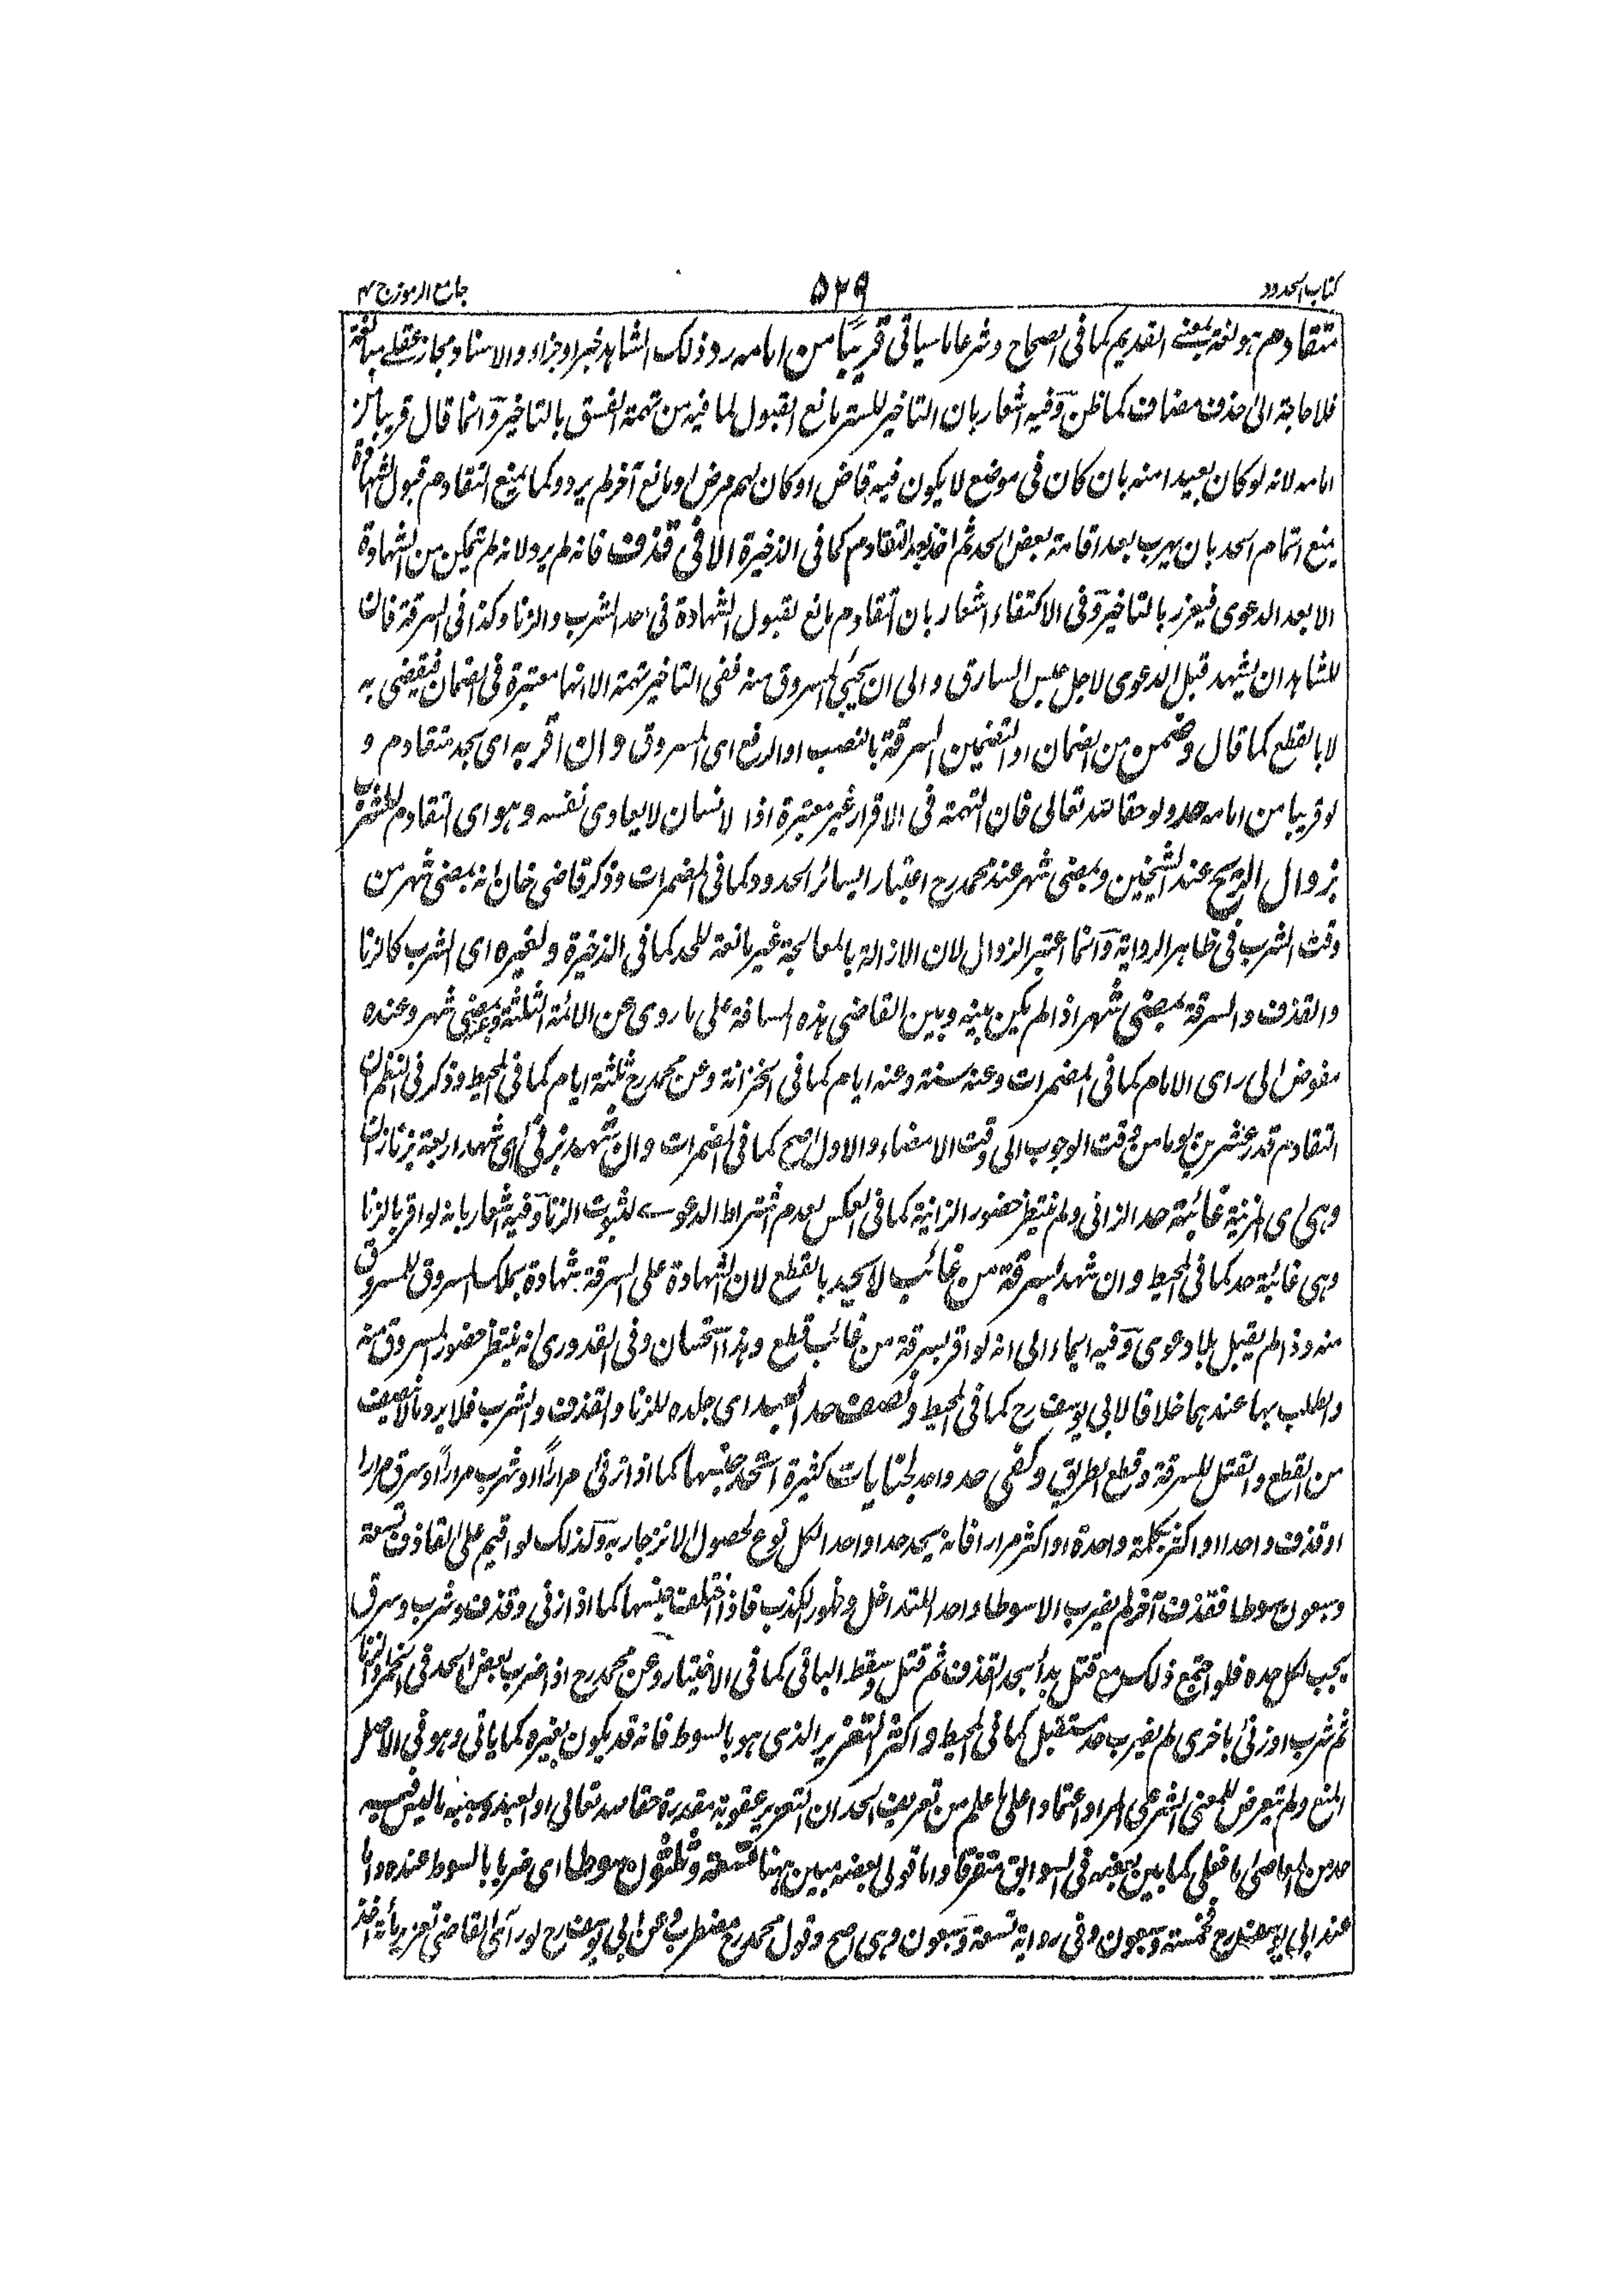 كتاب الحدود ٥٢٩ جامع الرموز ج ٢
متقادم هو لغة بمعنى القديم كما فى الصحاح وشرعا ما سياتى قريبا من امامه رد ذلك الشاهد خبر او جزاء والاسناد مجاز عقلى مبالغة
فلا حاجة الى حذف مضاف كما ظن وفيه اشعار بان التاخير للستر مانع القبول لما فيه من تهمة الفسق بالتاخير وانما قال قريبا من
امامه لانه لو كان بعيدا منه بان كان فى موضع لا يكون فيه قاض او كان لهم مرض او مانع آخر لم يرد وكما يمنع التقادم قبول الشهادة
يمنع اتمام الحد بان يهرب بعد اقامة بعض الحد ثم اخذ بعد التقادم كما فى الذخيرة الا فى قذف فانه لم يرد لانه لم يتمكن من الشهادة
الا بعد الدعوى فيعزر بالتاخير وفى الاكتفاء اشعار بان التقادم مانع لقبول الشهادة فى حد الشرب والزنا وكذا فى السرقة فان
للشاهد ان يشهد قبل الدعوى لاجل حبس السارق والى ان يجئ المسروق منه ففى التاخير تهمة الا انها معتبرة فى الضمان فيقضى به
لا بالقطع كما قال وضمن من الضمان او التضمين السرقة بالنصب او الرفع اى المسروق وان اقر به اى بحد متقادم و
لو قريبا من امامه حد ولو حقا لله تعالى فان التهمة فى الاقرار غير معتبرة اذ الانسان لا يعادى نفسه وهو اى التقادم للشرب
بزوال الريح عند الشيخين وبمضى شهر عند محمد رح اعتبارا بسائر الحدود كما فى المضمرات وذكر قاضى خان انه بمضى شهر من
وقت الشرب فى ظاهر الرواية وانما اعتبر الزوال لان الازالة بالمعالجة غير مانعة للحد كما فى الذخيرة ولغيره اى الشرب كالزنا
والقذف والسرقة بمضى شهر اذا لم يكن بينه وبين القاضى هذه المسافة على ما روى عن الائمة الثلثة وعنه بمضى شهر وعنده
مفوض الى راى الامام كما فى المضمرات وعنه سنة وعنه ايام كما فى الخزانة وعن محمد رح ثلثة ايام كما فى المحيط وذكر فى النظم ان
التقادم قدر عشرين يوما من وقت الوجوب الى وقت الامضاء والاول اصح كما فى المضمرات وان شهد بزنى اى شهد اربعة بزنا زان
وهى اى المزنية غائبة حد الزانى ولم ينتظر حضور الزانية كما فى العكس لعدم اشتراط الدعوى لثبوت الزنا وفيه اشعار بانه لو اقر بالزنا
وهى غائبة حد كما فى المحيط وان شهد بسرقة من غائب لا يحد بالقطع لان الشهادة على السرقة شهادة بملك المسروق للمسروق
منه وذا لم يقبل بلا دعوى وفيه ايماء الى انه لو اقر بسرقة من غائب قطع وهذا استحسان وفى القدورى انه ينتظر حضور المسروق منه
والطلب بها عندهما خلافا لابى يوسف رح كما فى المحيط ونصف حد العبد اى جلده للزنا والقذف والشرب فلا يرد مالا نصيف
من القطع والقتل للسرقة وقطع الطريق وكفى حد واحد لجنايات كثيرة اتحد جنسها كما اذا زنى مرارا او شرب مرارا او سرق مرارا
او قذف واحدا او اكثر بكلمة واحدة او اكثر مرارا فانه يحد حدا واحدا لكل نوع لحصول الانزجار به وكذلك لو اقيم على القاذف تسعة
وسبعون سوطا فقذف آخر لم يضرب الا سوطا واحدا للتداخل وظهور الكذب فاذا اختلفت جنسها كما اذا زنى وقذف وشرب وسرق
يجب لكل حده فلو اجتمع ذلك مع قتل بدأ بحد القذف ثم قتل وسقط الباقى كما فى الاختيار وعن محمد رح اذا ضرب بعض الحد فى الخمر والزنا
ثم شرب او زنى باخرى لم يضرب حد مستقبل كما فى المحيط واكثر التعزير الذى هو بالسوط فانه قد يكون بغيره كما ياتى وهو فى الاصل
المنع ولم يتعرض للمعنى الشرعى المراد اعتمادا على ما علم من تعريف الحد ان التعزير عقوبة مقدرة حقا لله تعالى او العبد وسببه ما ليس فيه
حد من المعاصى كما بين بعضه فى السوابق متفرقا وبعضه مبين ههنا تسعة وثلثون سوطا اى ضربا بالسوط عنده واما
عند ابى يوسف رح فخمسة وسبعون وفى رواية تسعة وسبعون وهى اصح وقول محمد رح مضطرب وعن ابى يوسف رح لو راى القاضى تعزير مأة اخذ